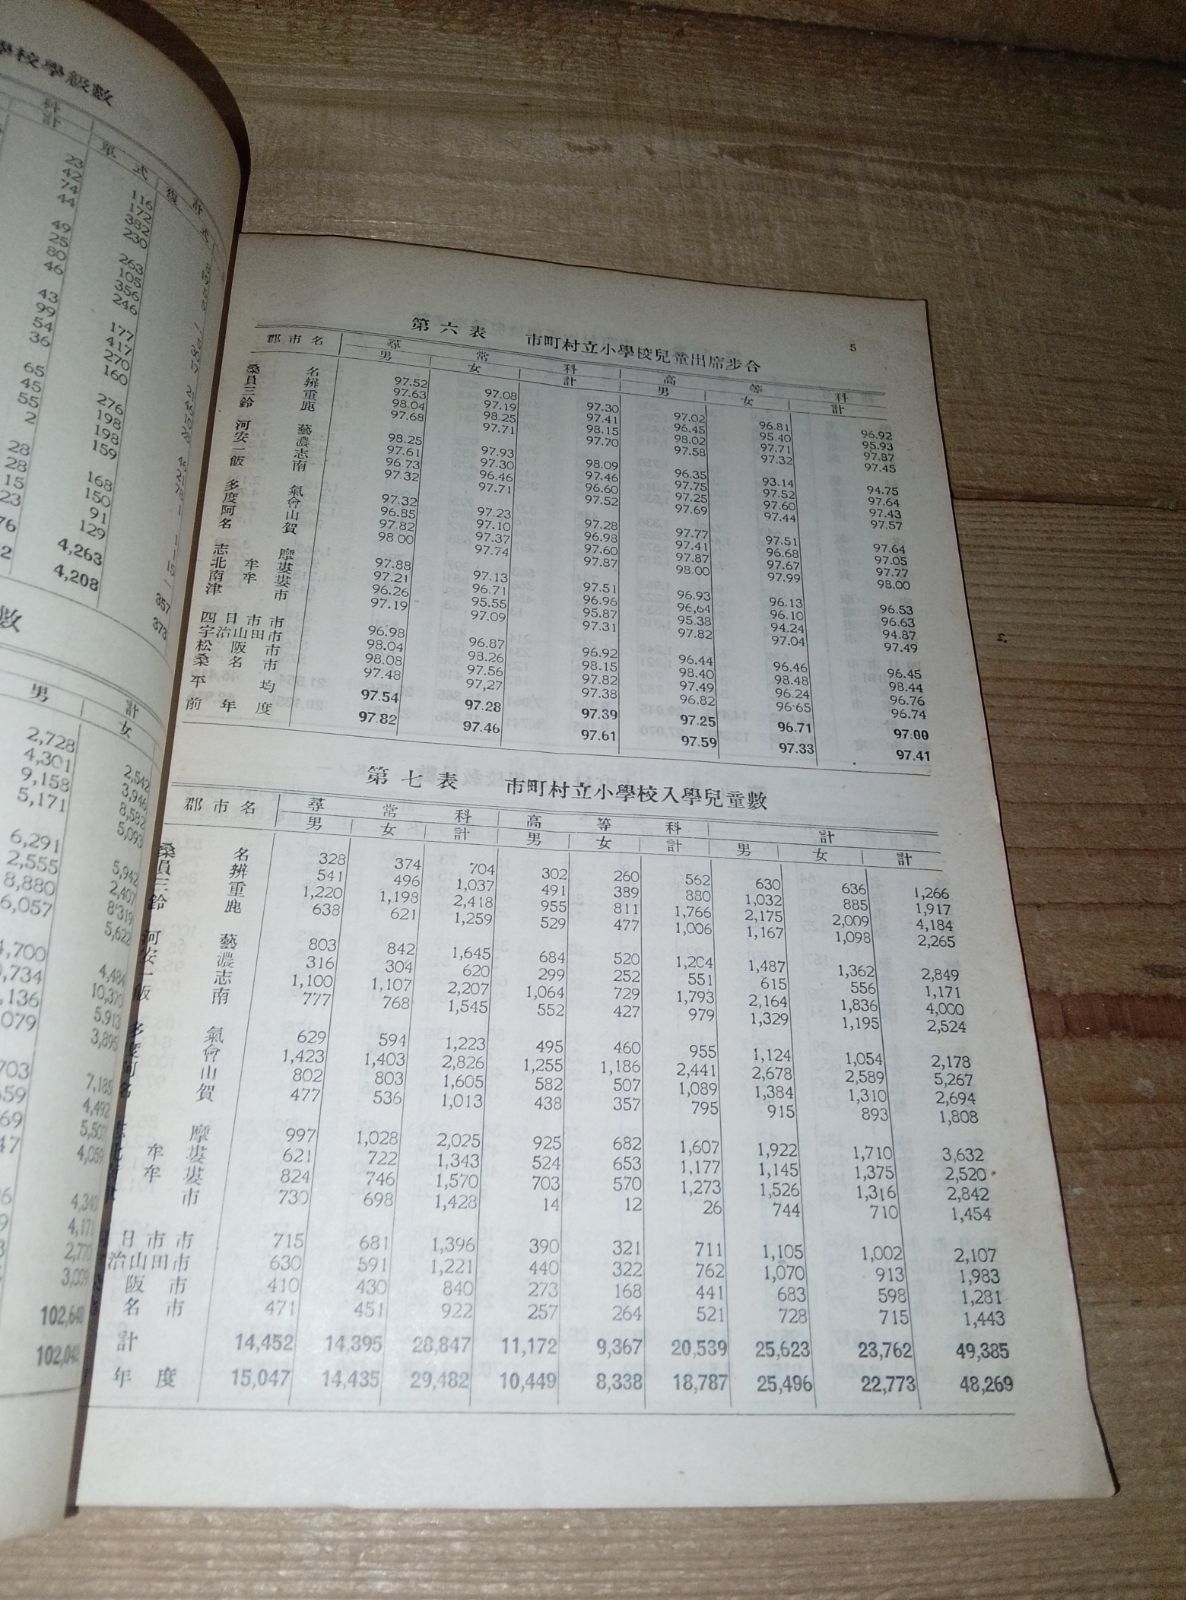 學校學級數
科
計
單式
複式
計
23
42
74
44
49
25
80
46
43
99
54
36
65
45
55
2
28
28
15
23
116
172
382
230
263
105
356
246
177
417
270
160
276
198
198
159
168
150
91
129
4,263
4,208
357
373
數
計
男
女
2,728
4,301
9,158
5,171
6,291
2,555
8,880
2,542
3,946
8,582
5,093
5,942
2,407
8,319
5,622
4,484
10,370
5,913
3,895
7,185
4,492
5,507
102,640
5
第六表 市町村立小學校兒童出席步合
郡市名 尋常科 高等科
男 女 計 男 女 計
桑名 97.52 97.08 97.30 97.02 96.81 96.92
員辨 97.63 97.19 97.41 96.45 95.40 95.93
三重 98.04 98.25 98.15 98.02 97.71 97.87
鈴鹿 97.68 97.71 97.70 97.58 97.32 97.45
河藝 98.25 97.93 98.09 96.35 93.14 94.75
安濃 97.61 97.30 97.46 97.75 97.52 97.64
一志 96.73 96.46 96.60 97.25 97.60 97.43
飯南 97.32 97.71 97.52 97.69 97.44 97.57
多氣 97.32 97.23 97.28 97.77 97.51 97.64
度會 96.85 97.10 96.98 97.41 96.68 97.05
阿山 97.82 97.37 97.60 97.87 97.67 97.77
名賀 98 00 97.74 97.87 98.00 97.99 98.00
志摩 97.88 97.13 97.51 96.93 96.13 96.53
北牟婁 97.21 96.71 96.96 96,64 96.10 96.63
南牟婁 96.26 95.55 95.87 95.38 94.24 94.87
津市 97.19 97.09 97.31 97.82 97.04 97.49
四日市市 96.98 96.87 96.92 96.44 96.46 96.45
宇治山田市 98.04 98.26 98.15 98.40 98.48 98.44
松阪市 98.08 97.56 97.82 97.49 96.24 96.76
桑名市 97.48 97,27 97.38 96.82 96·65 96.74
平均 97.54 97.28 97.39 97.25 96.71 97.00
前年度 97.82 97.46 97.61 97.59 97.33 97.41
第七表 市町村立小學校入學兒童數
郡市名 尋常科 高等科 計
男 女 計 男 女 計 男 女 計
桑名 328 374 704 302 260 562 630 636 1,266
員辨 541 496 1,037 491 389 880 1,032 885 1,917
三重 1,220 1,198 2,418 955 811 1,766 2,175 2,009 4,184
鈴鹿 638 621 1,259 529 477 1,006 1,167 1,098 2,265
河藝 803 842 1,645 684 520 1,204 1,487 1,362 2,849
安濃 316 304 620 299 252 551 615 556 1,171
一志 1,100 1,107 2,207 1,064 729 1,793 2,164 1,836 4,000
飯南 777 768 1,545 552 427 979 1,329 1,195 2,524
多氣 629 594 1,223 495 460 955 1,124 1,054 2,178
度會 1,423 1,403 2,826 1,255 1,186 2,441 2,678 2,589 5,267
阿山 802 803 1,605 582 507 1,089 1,384 1,310 2,694
名賀 477 536 1,013 438 357 795 915 893 1,808
摩 997 1,028 2,025 925 682 1,607 1,922 1,710 3,632
牟婁 621 722 1,343 524 653 1,177 1,145 1,375 2,520
牟婁 824 746 1,570 703 570 1,273 1,526 1,316 2,842
市 730 698 1,428 14 12 26 744 710 1,454
日市市 715 681 1,396 390 321 711 1,105 1,002 2,107
治山田市 630 591 1,221 440 322 762 1,070 913 1,983
阪市 410 430 840 273 168 441 683 598 1,281
名市 471 451 922 257 264 521 728 715 1,443
計 14,452 14,395 28,847 11,172 9,367 20,539 25,623 23,762 49,385
年度 15,047 14,435 29,482 10,449 8,338 18,787 25,496 22,773 48,269